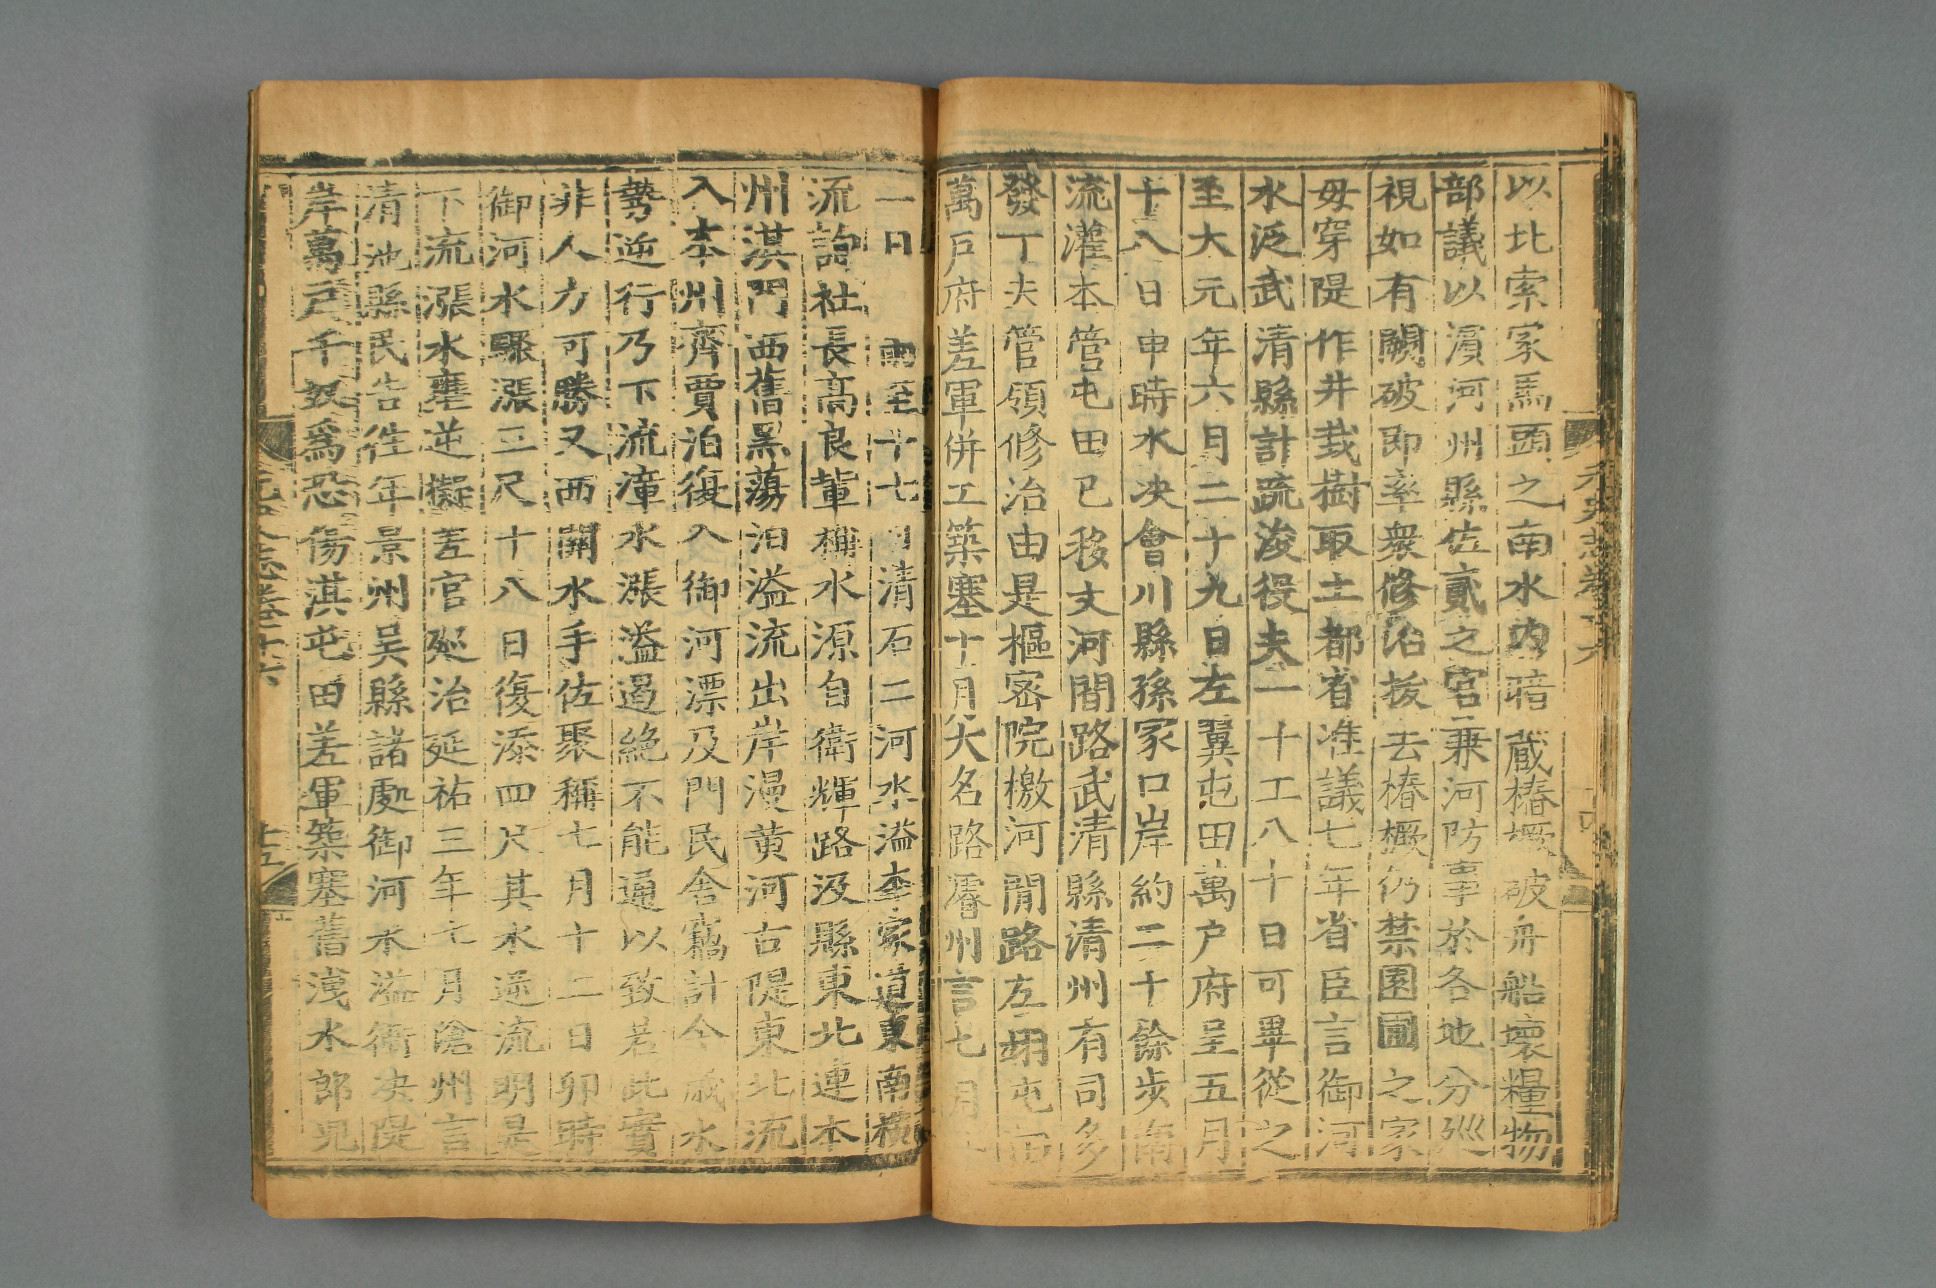 以北索家馬頭之南水內暗藏樁橛破舟船壞糧物
部議以濱河州縣佐貳之官兼河防事於各地分廵
視如有闕破即率衆修治拔去樁橛仍禁園圃之家
毋穿隄作井栽樹取土都省准議七年省臣言御河
水泛武清縣計疏浚役夫一十工八十日可畢從之
至大元年六月二十九日左翼屯田萬户府呈五月
十八日申時水决會川縣孫家口岸約二十餘步南
流灌本管屯田已移文河間路武清縣清州有司多
發丁夫管領修治由是樞密院檄河間路左翊屯田
萬戶府差軍併工築塞十月大名路濬州言七月十
一日 雨至十七日清石二河水溢李家道東南橫
流詢社長高良輩稱水源自衛輝路汲縣東北連本
州淇門西舊黑蕩泊溢流出岸漫黄河古隄東北流
入本州齊賈泊復入御河漂及門民舍竊計今歲水
勢逆行乃下流漳水漲溢遏絶不能通以致若此實
非人力可勝又西關水手佐聚稱七月十二日卯時
御河水驟漲三尺十八日復添四尺其水逆流明是
下流漲水壅逆擬差官廵治延祐三年七月滄州言
清池縣民告徃年景州吳縣諸處御河水溢衝决隄
岸萬戸千奴爲恐傷淇屯田差軍築塞舊洩水郎兒
元史志卷十六
十五